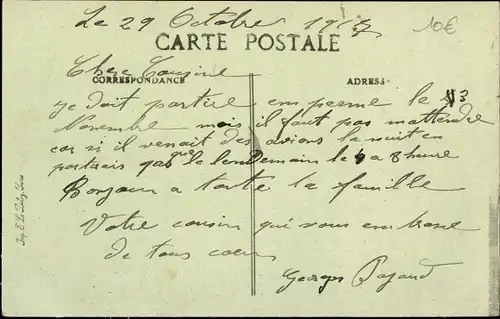 Le 29 Octobre 1917
10€
CARTE POSTALE
Chere Cousine
CORRESPONDANCE
ADRESSE
je doit partire en perme le 3
Novembre mais il faut pas mattendre
car si il venait des avions la nuit en
partirais que le lendemain le 4 a 8 heure
Bonjour a toute la famille
Votre cousin qui vous embrase
de tous coeur
Georges